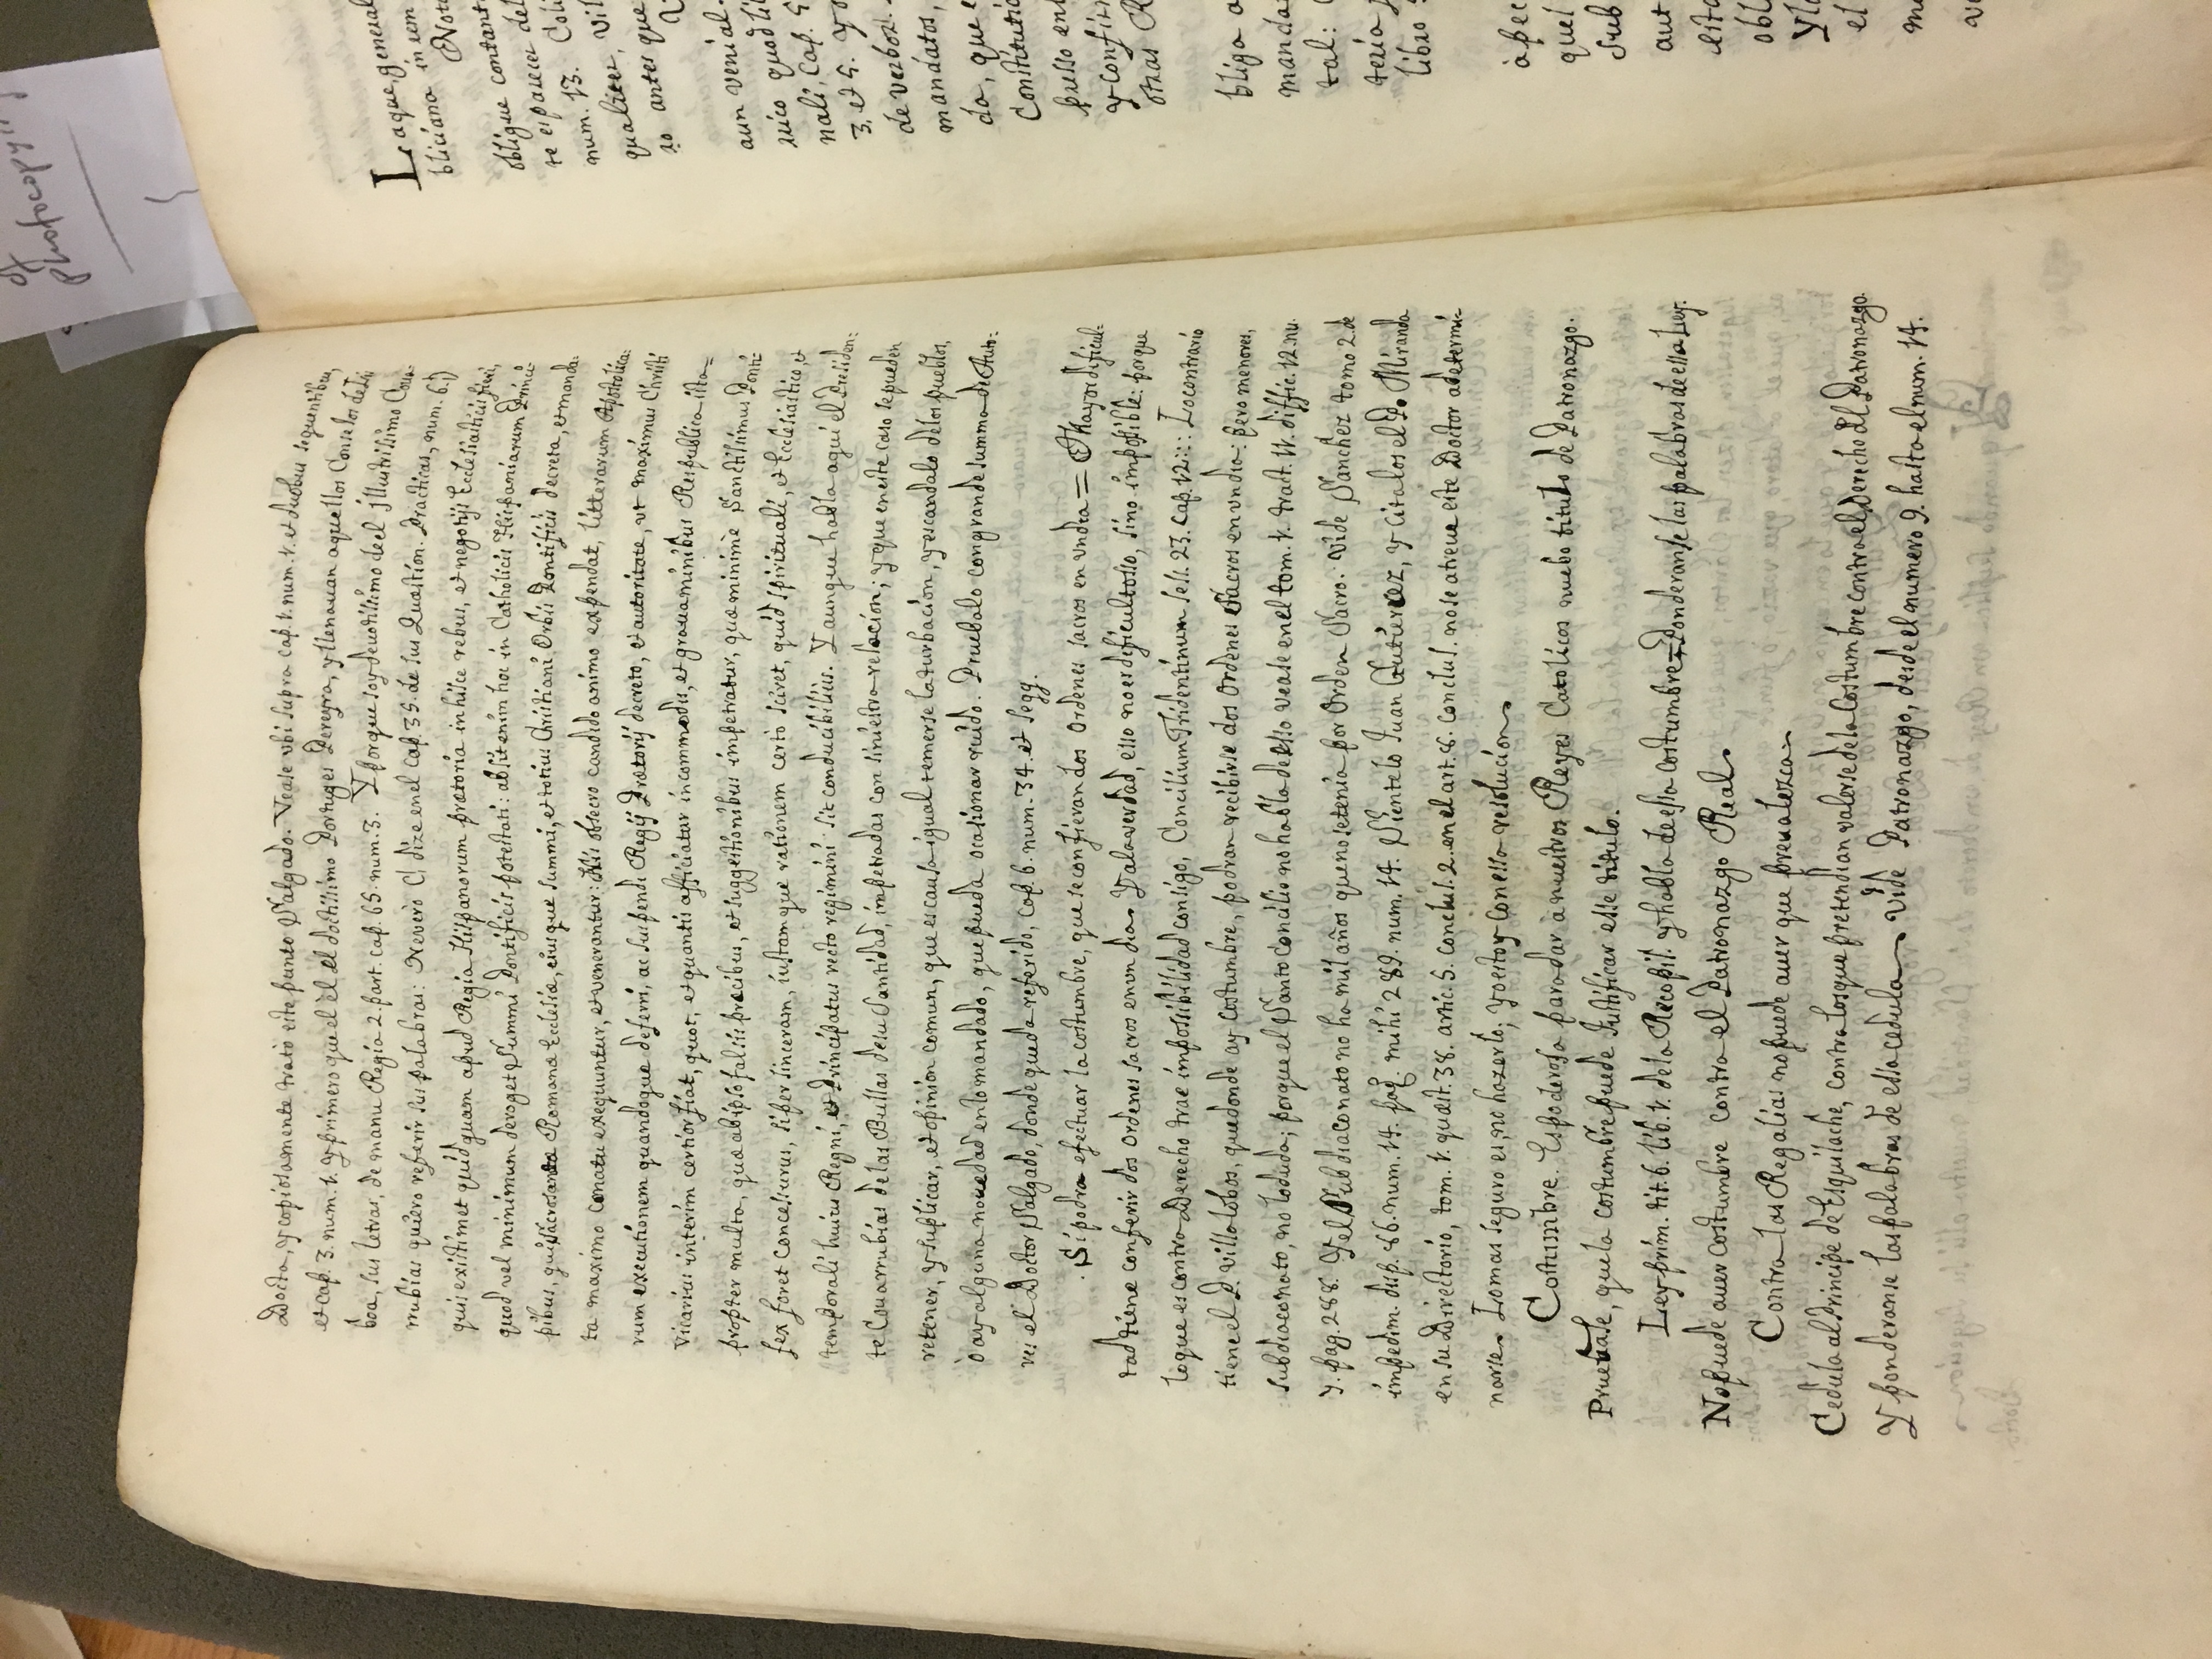 of
photocopying
Docta, y copiosamente tratò este punto Salgado. Vease vbi supra cap. 1. num. 1. et duobus sequentibus,
et cap. 3. num. 1. y primero que el èl el doctissimo Portuges Pereyra, y llenauan aquellos Conselos de Lis
boa, sus letras, de manu Regia 2. part. cap. 65. num. 3. Y porque soy deuotissimo de el jllustrissimo Coua-
rrubias quiero referir sus palabras: Neverò (dize en el cap. 35. de sus Quæstion. Practicas, num. 6.)
quis existimet quidquam apud Regia Hispanorum prætoria in hisce rebus, et negotijs Ecclesiasticis fieri,
quod vel minimum deroget Summi Pontificis potestati: absit enim hoc in Catholicis Hispaniarum Princi-
pibus, qui sacrosanctæ Romanæ Ecclesiæ, eiusque summi, et totius Christiani Orbis Pontificis decreta, et manda-
ta maximo conatu exequuntur, et venerantur: His obsecro candido animo expendat, litterarum Apostolica-
rum executionem quandoque deferri, ac suspendi Regij Prætorij decreto, et autoritate, vt maximus Christi
Vicarius interim certior fiat, quot, et quantis afficiatur incommodis, et grauaminibus Respublica ista=
propter multa, quæ ab ipso falsis præcibus, et suggestionibus impetratur, quæ minimè Sanctissimus Ponti-
fex foret concessurus, si per sinceram, iustamque rationem certò sciret, quid spirituali, et Ecclesiastico, et
temporali huius Regni, et Principatus recto regimini sit conducibiliùs. Y aunque habla aqui el Presiden-
te Couarrubias de las Bullas de su Santidad, impetradas con siniestra relacion; y que en este caso se pueden
retener, y suplicar, et opinion comun, que es causa igual temerse la turbacion, y escandalo de los pueblos,
ò ay alguna nouedad en lo mandado, que pueda ocasionar ruido. Pruebalo con grande summa de Auto-
res el Doctor Salgado, donde queda referido, cap. 6. num. 34. et seqq.
. Si podra efectuar la costumbre, que se confieran dos Ordenes sacros en vn dia = Mayor dificul-
tad tiene conferir dos Ordenes sacros en vn dia. Y a la verdad, esso no es dificultosso, sino impossible: porque
lo que es contra Derecho trae impossibilidad consigo, Concilium Tridentinum sess. 23. cap. 12:::: Lo contrario
tiene el P. Villalobos, que donde ay costumbre, podran recibirse dos Ordenes Sacros en vn dia: pero menores,
subdiaconato, no lo duda; porque el Santo Concilio no habla de esso vease en el tom. 1. tract. 11. diffic. 12. nu.
y. pag. 288. Y el Subdiaconato no ha mil años que no se tenia por Orden Sacro. Vide Sanchez tomo 2. de
impedim. disp. 86. num. 14. pag. mihi 289. num. 14. Sientelo Juan Gutierrez, y citalos el P. Miranda
en su Directorio, tom. 1. quæst. 38. artic. 5. conclus. 2. en el art. 8. conclus. no se atreue este Doctor a determi-
narse. Lo mas seguro es, no hazerlo; yo estoy con essa resolucion.
Costumbre. Es poderosa para dar à nuestros Reyes Catolicos nuebo titulo de Patronazgo.
Pruebase, que la costumbre puede Justificar esse titulo.
Ley prim. tit. 6. lib. 1. de la Recopil. y habla de essa costumbre = Ponderanse las palabras de essa Ley.
No puede auer costumbre contra el Patronazgo Real.
Contra las Regalias no puede auer que preualezca.
Cedula al Principe de Esquilache, contra los que pretendian valerse de la Costumbre contra el Derecho del Patronazgo.
Y ponderanse las palabras de essa cedula. Vide Patronazgo, desde el numero 9. hasta el num. 14.
La que, general
bliciana in sum
Nota
obligue contant
te es parecer del
num. 13. Coli
qualiter, Vil
ro antes que
aun venial.
rico quodli
nali, cap. 5
3. et 5. y o
de verbor.
mandatos,
da, que e
Constitutio
presso en l
y confir
otras R
bliga a
manda
tal:
teria
libro
à pec
quel
sub
aut
esta
obl
Y la
el